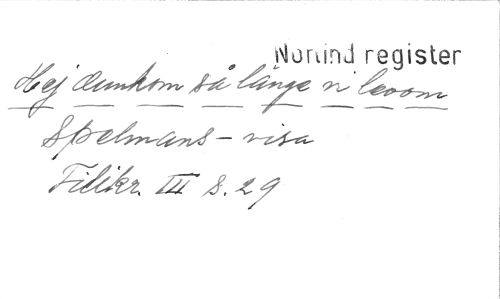 Norlind register
Hej dunkom så länge vi levom
Spelmans-visa
Filikr. III s. 29